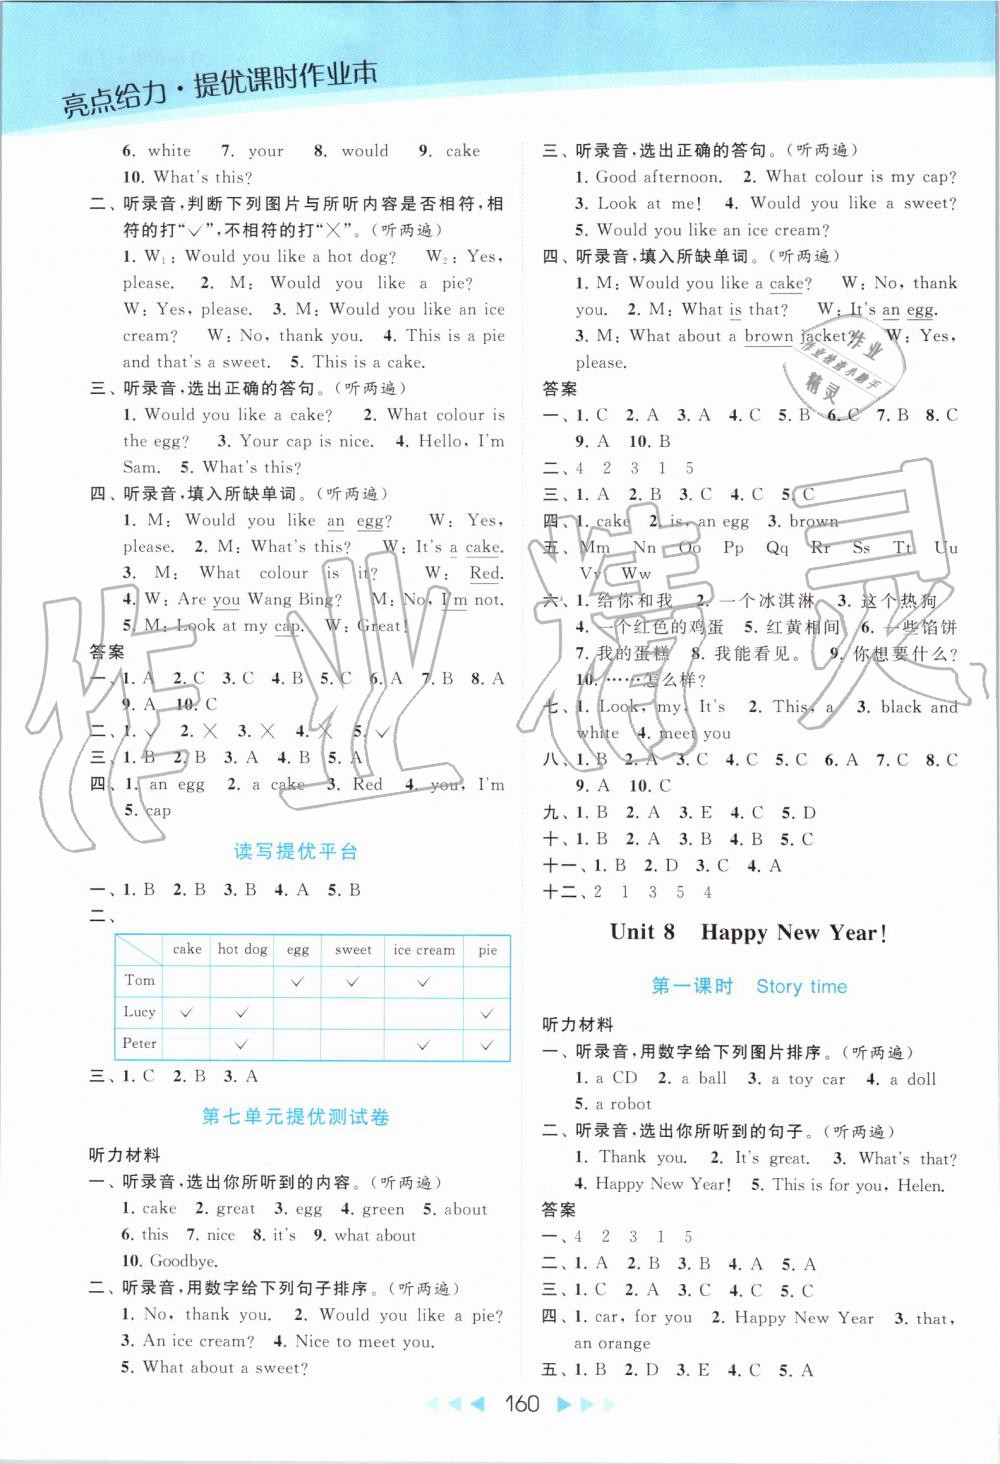 亮点给力·提优课时作业本
6. white 7. your 8. would 9. cake
10. What's this?
二、听录音,判断下列图片与所听内容是否相符,相
符的打“✓”,不相符的打“╳”。(听两遍)
1. W₁: Would you like a hot dog? W₂: Yes,
please. 2. M: Would you like a pie?
W: Yes, please. 3. M: Would you like an ice
cream? W: No, thank you. 4. This is a pie
and that's a sweet. 5. This is a cake.
三、听录音,选出正确的答句。(听两遍)
1. Would you like a cake? 2. What colour is
the egg? 3. Your cap is nice. 4. Hello, I'm
Sam. 5. What's this?
四、听录音,填入所缺单词。(听两遍)
1. M: Would you like an egg? W: Yes,
please. 2. M: What's this? W: It's a cake.
3. M: What colour is it? W: Red.
4. W: Are you Wang Bing? M: No, I'm not.
5. M: Look at my cap. W: Great!
答案
一、1. A 2. C 3. C 4. B 5. C 6. A 7. B 8. A
9. A 10. C
二、1. ✓ 2. ╳ 3. ╳ 4. ╳ 5. ✓
三、1. B 2. B 3. A 4. B 5. A
四、1. an egg 2. a cake 3. Red 4. you, I'm
5. cap
读写提优平台
一、1. B 2. B 3. B 4. A 5. B
二、
cake hot dog egg sweet ice cream pie
Tom ✓ ✓ ✓
Lucy ✓ ✓ ✓
Peter ✓ ✓ ✓
三、1. C 2. B 3. A
第七单元提优测试卷
听力材料
一、听录音,选出你所听到的内容。(听两遍)
1. cake 2. great 3. egg 4. green 5. about
6. this 7. nice 8. it's 9. what about
10. Goodbye.
二、听录音,用数字给下列句子排序。(听两遍)
1. No, thank you. 2. Would you like a pie?
3. An ice cream? 4. Nice to meet you.
5. What about a sweet?
三、听录音,选出正确的答句。(听两遍)
1. Good afternoon. 2. What colour is my cap?
3. Look at me! 4. Would you like a sweet?
5. Would you like an ice cream?
四、听录音,填入所缺单词。(听两遍)
1. M: Would you like a cake? W: No, thank
you. 2. M: What is that? W: It's an egg.
3. M: What about a brown jacket? W: Yes,
please.
答案
一、1. C 2. A 3. A 4. C 5. B 6. C 7. B 8. C
9. A 10. B
二、4 2 3 1 5
三、1. A 2. B 3. C 4. B 5. C
四、1. cake 2. is, an egg 3. brown
五、Mm Nn Oo Pp Qq Rr Ss Tt Uu
Vv Ww
六、1. 给你和我 2. 一个冰淇淋 3. 这个热狗
4. 一个红色的鸡蛋 5. 红黄相间 6. 一些馅饼
7. 我的蛋糕 8. 我能看见。 9. 你想要什么?
10. ……怎么样?
七、1. Look, my, It's 2. This, a 3. black and
white 4. meet you
八、1. B 2. A 3. C 4. C 5. C 6. A 7. B 8. C
9. A 10. C
九、1. B 2. A 3. E 4. C 5. D
十、1. B 2. A 3. B 4. B 5. C
十一、1. B 2. D 3. C 4. E 5. A
十二、2 1 3 5 4
Unit 8 Happy New Year!
第一课时 Story time
听力材料
一、听录音,用数字给下列图片排序。(听两遍)
1. a CD 2. a ball 3. a toy car 4. a doll
5. a robot
二、听录音,选出你所听到的句子。(听两遍)
1. Thank you. 2. It's great. 3. What's that?
4. Happy New Year! 5. This is for you, Helen.
答案
一、4 2 3 1 5
二、1. A 2. B 3. B 4. A 5. A
三、1. C 2. A 3. C 4. C 5. C
四、1. car, for you 2. Happy New Year 3. that,
an orange
五、1. B 2. D 3. E 4. C 5. A
160
作业
作业检查小助手
精灵
作业精灵